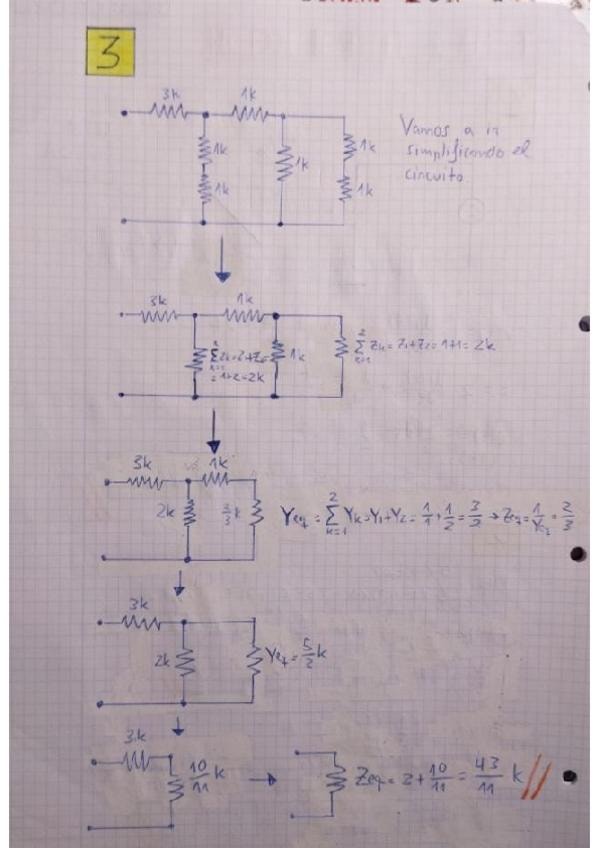 3
3k 1k
1k 1k 1k
1k 1k
Vamos a ir
simplificando el
circuito.
3k 1k
1k
= 1+2=2k
∑ Zk = Z1+Z2 = 1+1 = 2k
3k 1k
2k 2/3 k
Yeq = ∑ Yk = Y1+Y2 = 1/1 + 1/2 = 3/2 → Zeq = 1/Yeq = 2/3
3k
2k Yeq = 5/2 k
3k
10/11 k → Zeq = 3 + 10/11 = 43/11 k //